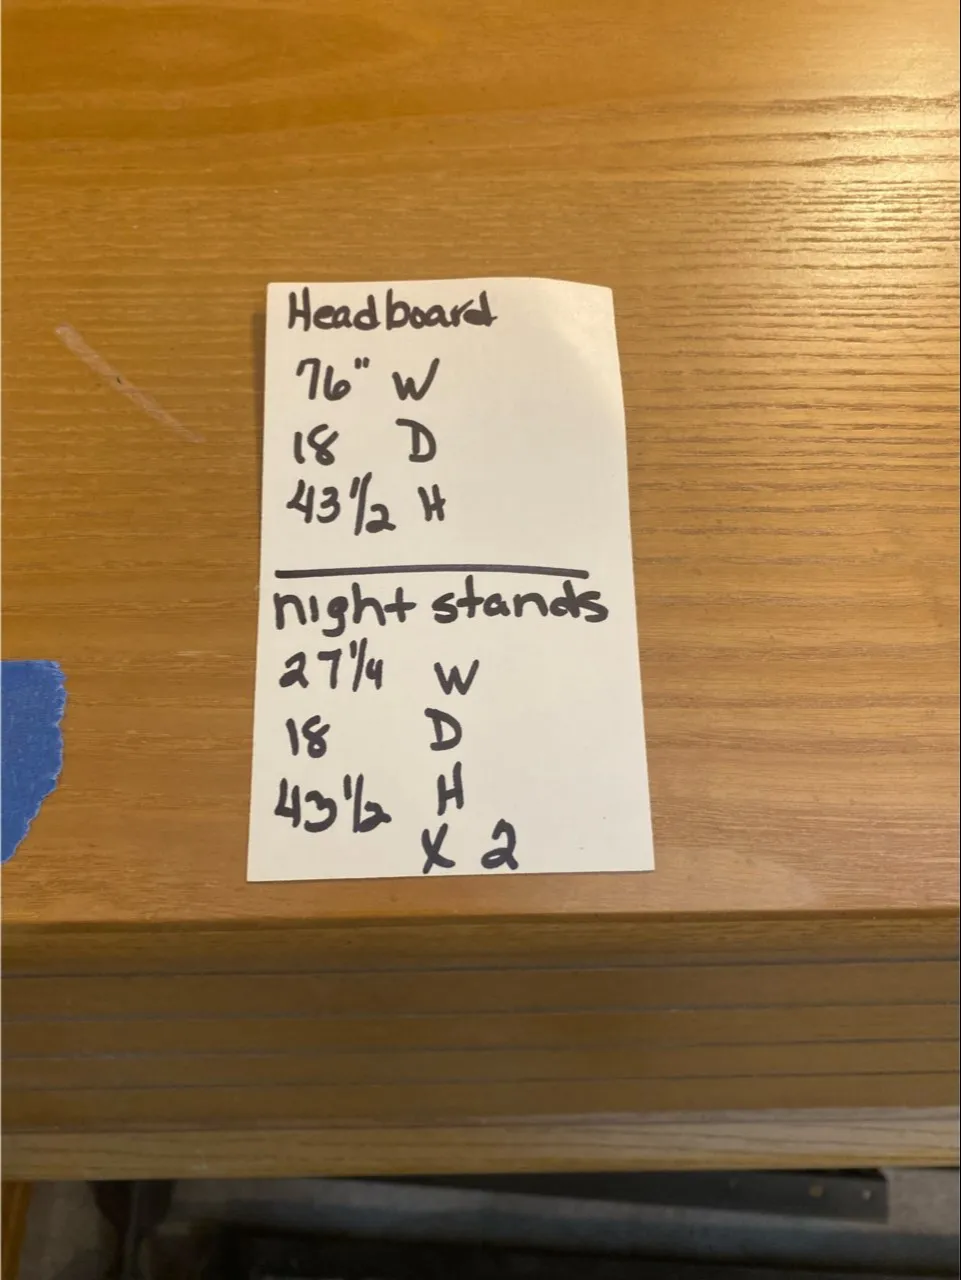 Headboard
76" W
18 D
43 1/2 H
night stands
27 1/4 W
18 D
43 1/2 H
X 2